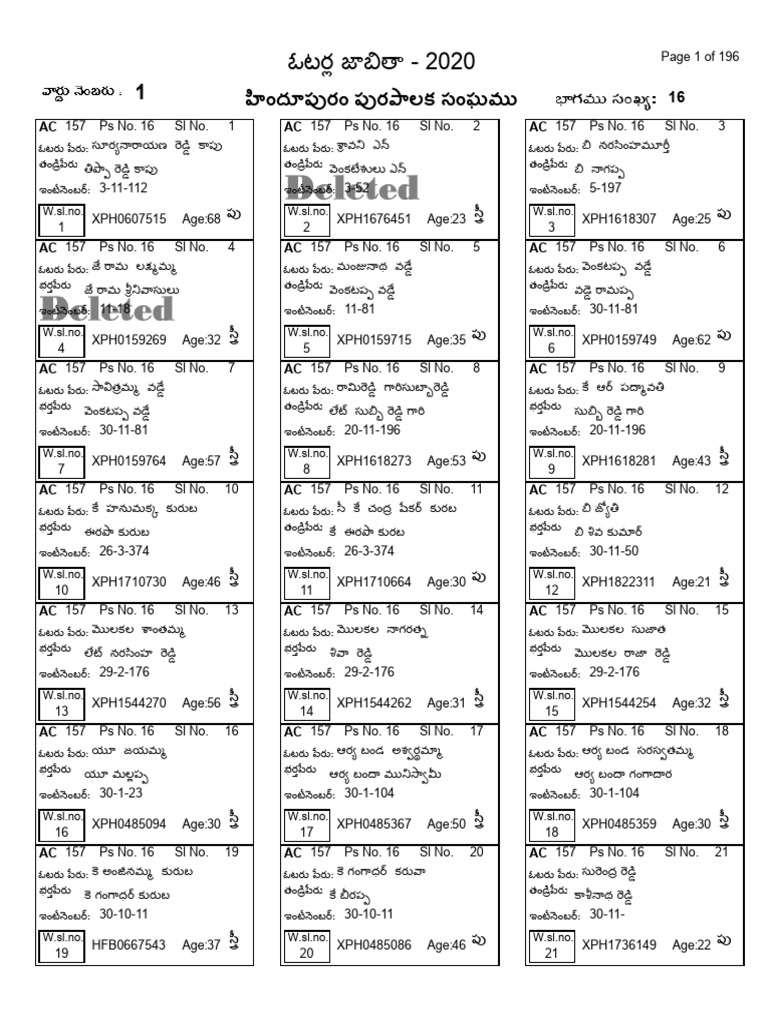 ఓటర్ల జాబితా - 2020
Page 1 of 196
వార్డు నెంబరు : 1
హిందూపురం పురపాలక సంఘము
భాగము సంఖ్య: 16
AC 157 Ps No. 16 Sl No. 1
ఓటరు పేరు: సూర్యనారాయణ రెడ్డి కాపు
తండ్రిపేరు తిప్పా రెడ్డి కాపు
ఇంటినెంబర్: 3-11-112
W.sl.no. 1 XPH0607515 Age:68 పు
AC 157 Ps No. 16 Sl No. 2
ఓటరు పేరు: శ్రావని ఎన్
తండ్రిపేరు వెంకటేశులు ఎన్
ఇంటినెంబర్: 3-52
Deleted
W.sl.no. 2 XPH1676451 Age:23 స్త్రీ
AC 157 Ps No. 16 Sl No. 3
ఓటరు పేరు: బి నరసింహమూర్తీ
తండ్రిపేరు బి నాగప్ప
ఇంటినెంబర్: 5-197
W.sl.no. 3 XPH1618307 Age:25 పు
AC 157 Ps No. 16 Sl No. 4
ఓటరు పేరు: జే రామ లక్ష్మమ్మ
భర్తపేరు జే రామ శ్రీనివాసులు
ఇంటినెంబర్: 11-18
Deleted
W.sl.no. 4 XPH0159269 Age:32 స్త్రీ
AC 157 Ps No. 16 Sl No. 5
ఓటరు పేరు: మంజునాథ వడ్డే
తండ్రిపేరు వెంకటప్ప వడ్డే
ఇంటినెంబర్: 11-81
W.sl.no. 5 XPH0159715 Age:35 పు
AC 157 Ps No. 16 Sl No. 6
ఓటరు పేరు: వెంకటప్ప వడ్డే
తండ్రిపేరు వడ్డె రామప్ప
ఇంటినెంబర్: 30-11-81
W.sl.no. 6 XPH0159749 Age:62 పు
AC 157 Ps No. 16 Sl No. 7
ఓటరు పేరు: సావిత్రమ్మ వడ్డే
భర్తపేరు వెంకటప్ప వడ్డే
ఇంటినెంబర్: 30-11-81
W.sl.no. 7 XPH0159764 Age:57 స్త్రీ
AC 157 Ps No. 16 Sl No. 8
ఓటరు పేరు: రామిరెడ్డి గారిసుబ్బారెడ్డి
తండ్రిపేరు లేట్ సుబ్బి రెడ్డి గారి
ఇంటినెంబర్: 20-11-196
W.sl.no. 8 XPH1618273 Age:53 పు
AC 157 Ps No. 16 Sl No. 9
ఓటరు పేరు: కే ఆర్ పద్మావతి
భర్తపేరు సుబ్బి రెడ్డి గారి
ఇంటినెంబర్: 20-11-196
W.sl.no. 9 XPH1618281 Age:43 స్త్రీ
AC 157 Ps No. 16 Sl No. 10
ఓటరు పేరు: కే హనుమక్క కురుబ
భర్తపేరు ఈరపా కురుబ
ఇంటినెంబర్: 26-3-374
W.sl.no. 10 XPH1710730 Age:46 స్త్రీ
AC 157 Ps No. 16 Sl No. 11
ఓటరు పేరు: సీ కే చంద్ర షేకర్ కురబ
తండ్రిపేరు కే ఈరపా కురబ
ఇంటినెంబర్: 26-3-374
W.sl.no. 11 XPH1710664 Age:30 పు
AC 157 Ps No. 16 Sl No. 12
ఓటరు పేరు: బి జ్యోతి
భర్తపేరు బి శివ కుమార్
ఇంటినెంబర్: 30-11-50
W.sl.no. 12 XPH1822311 Age:21 స్త్రీ
AC 157 Ps No. 16 Sl No. 13
ఓటరు పేరు: మొలకల శాంతమ్మ
భర్తపేరు లేట్ నరసింహ రెడ్డి
ఇంటినెంబర్: 29-2-176
W.sl.no. 13 XPH1544270 Age:56 స్త్రీ
AC 157 Ps No. 16 Sl No. 14
ఓటరు పేరు: మొలకల నాగరత్న
భర్తపేరు శివా రెడ్డి
ఇంటినెంబర్: 29-2-176
W.sl.no. 14 XPH1544262 Age:31 స్త్రీ
AC 157 Ps No. 16 Sl No. 15
ఓటరు పేరు: మొలకల సుజాత
భర్తపేరు మొలకల రాజా రెడ్డి
ఇంటినెంబర్: 29-2-176
W.sl.no. 15 XPH1544254 Age:32 స్త్రీ
AC 157 Ps No. 16 Sl No. 16
ఓటరు పేరు: యూ జయమ్మ
భర్తపేరు యూ మల్లప్ప
ఇంటినెంబర్: 30-1-23
W.sl.no. 16 XPH0485094 Age:30 స్త్రీ
AC 157 Ps No. 16 Sl No. 17
ఓటరు పేరు: ఆర్య బండ అశ్వర్థమ్మా
భర్తపేరు ఆర్య బందా మునిస్వామీ
ఇంటినెంబర్: 30-1-104
W.sl.no. 17 XPH0485367 Age:50 స్త్రీ
AC 157 Ps No. 16 Sl No. 18
ఓటరు పేరు: ఆర్య బండ సరస్వతమ్మ
భర్తపేరు ఆర్య బందా గంగాదార
ఇంటినెంబర్: 30-1-104
W.sl.no. 18 XPH0485359 Age:30 స్త్రీ
AC 157 Ps No. 16 Sl No. 19
ఓటరు పేరు: కె అంజినమ్మ కురుబ
భర్తపేరు కె గంగాధర్ కురుబ
ఇంటినెంబర్: 30-10-11
W.sl.no. 19 HFB0667543 Age:37 స్త్రీ
AC 157 Ps No. 16 Sl No. 20
ఓటరు పేరు: కె గంగాధర్ కరువా
తండ్రిపేరు కే బీరప్ప
ఇంటినెంబర్: 30-10-11
W.sl.no. 20 XPH0485086 Age:46 పు
AC 157 Ps No. 16 Sl No. 21
ఓటరు పేరు: సురేంద్ర రెడ్డి
తండ్రిపేరు కాశీనాథ రెడ్డి
ఇంటినెంబర్: 30-11-
W.sl.no. 21 XPH1736149 Age:22 పు